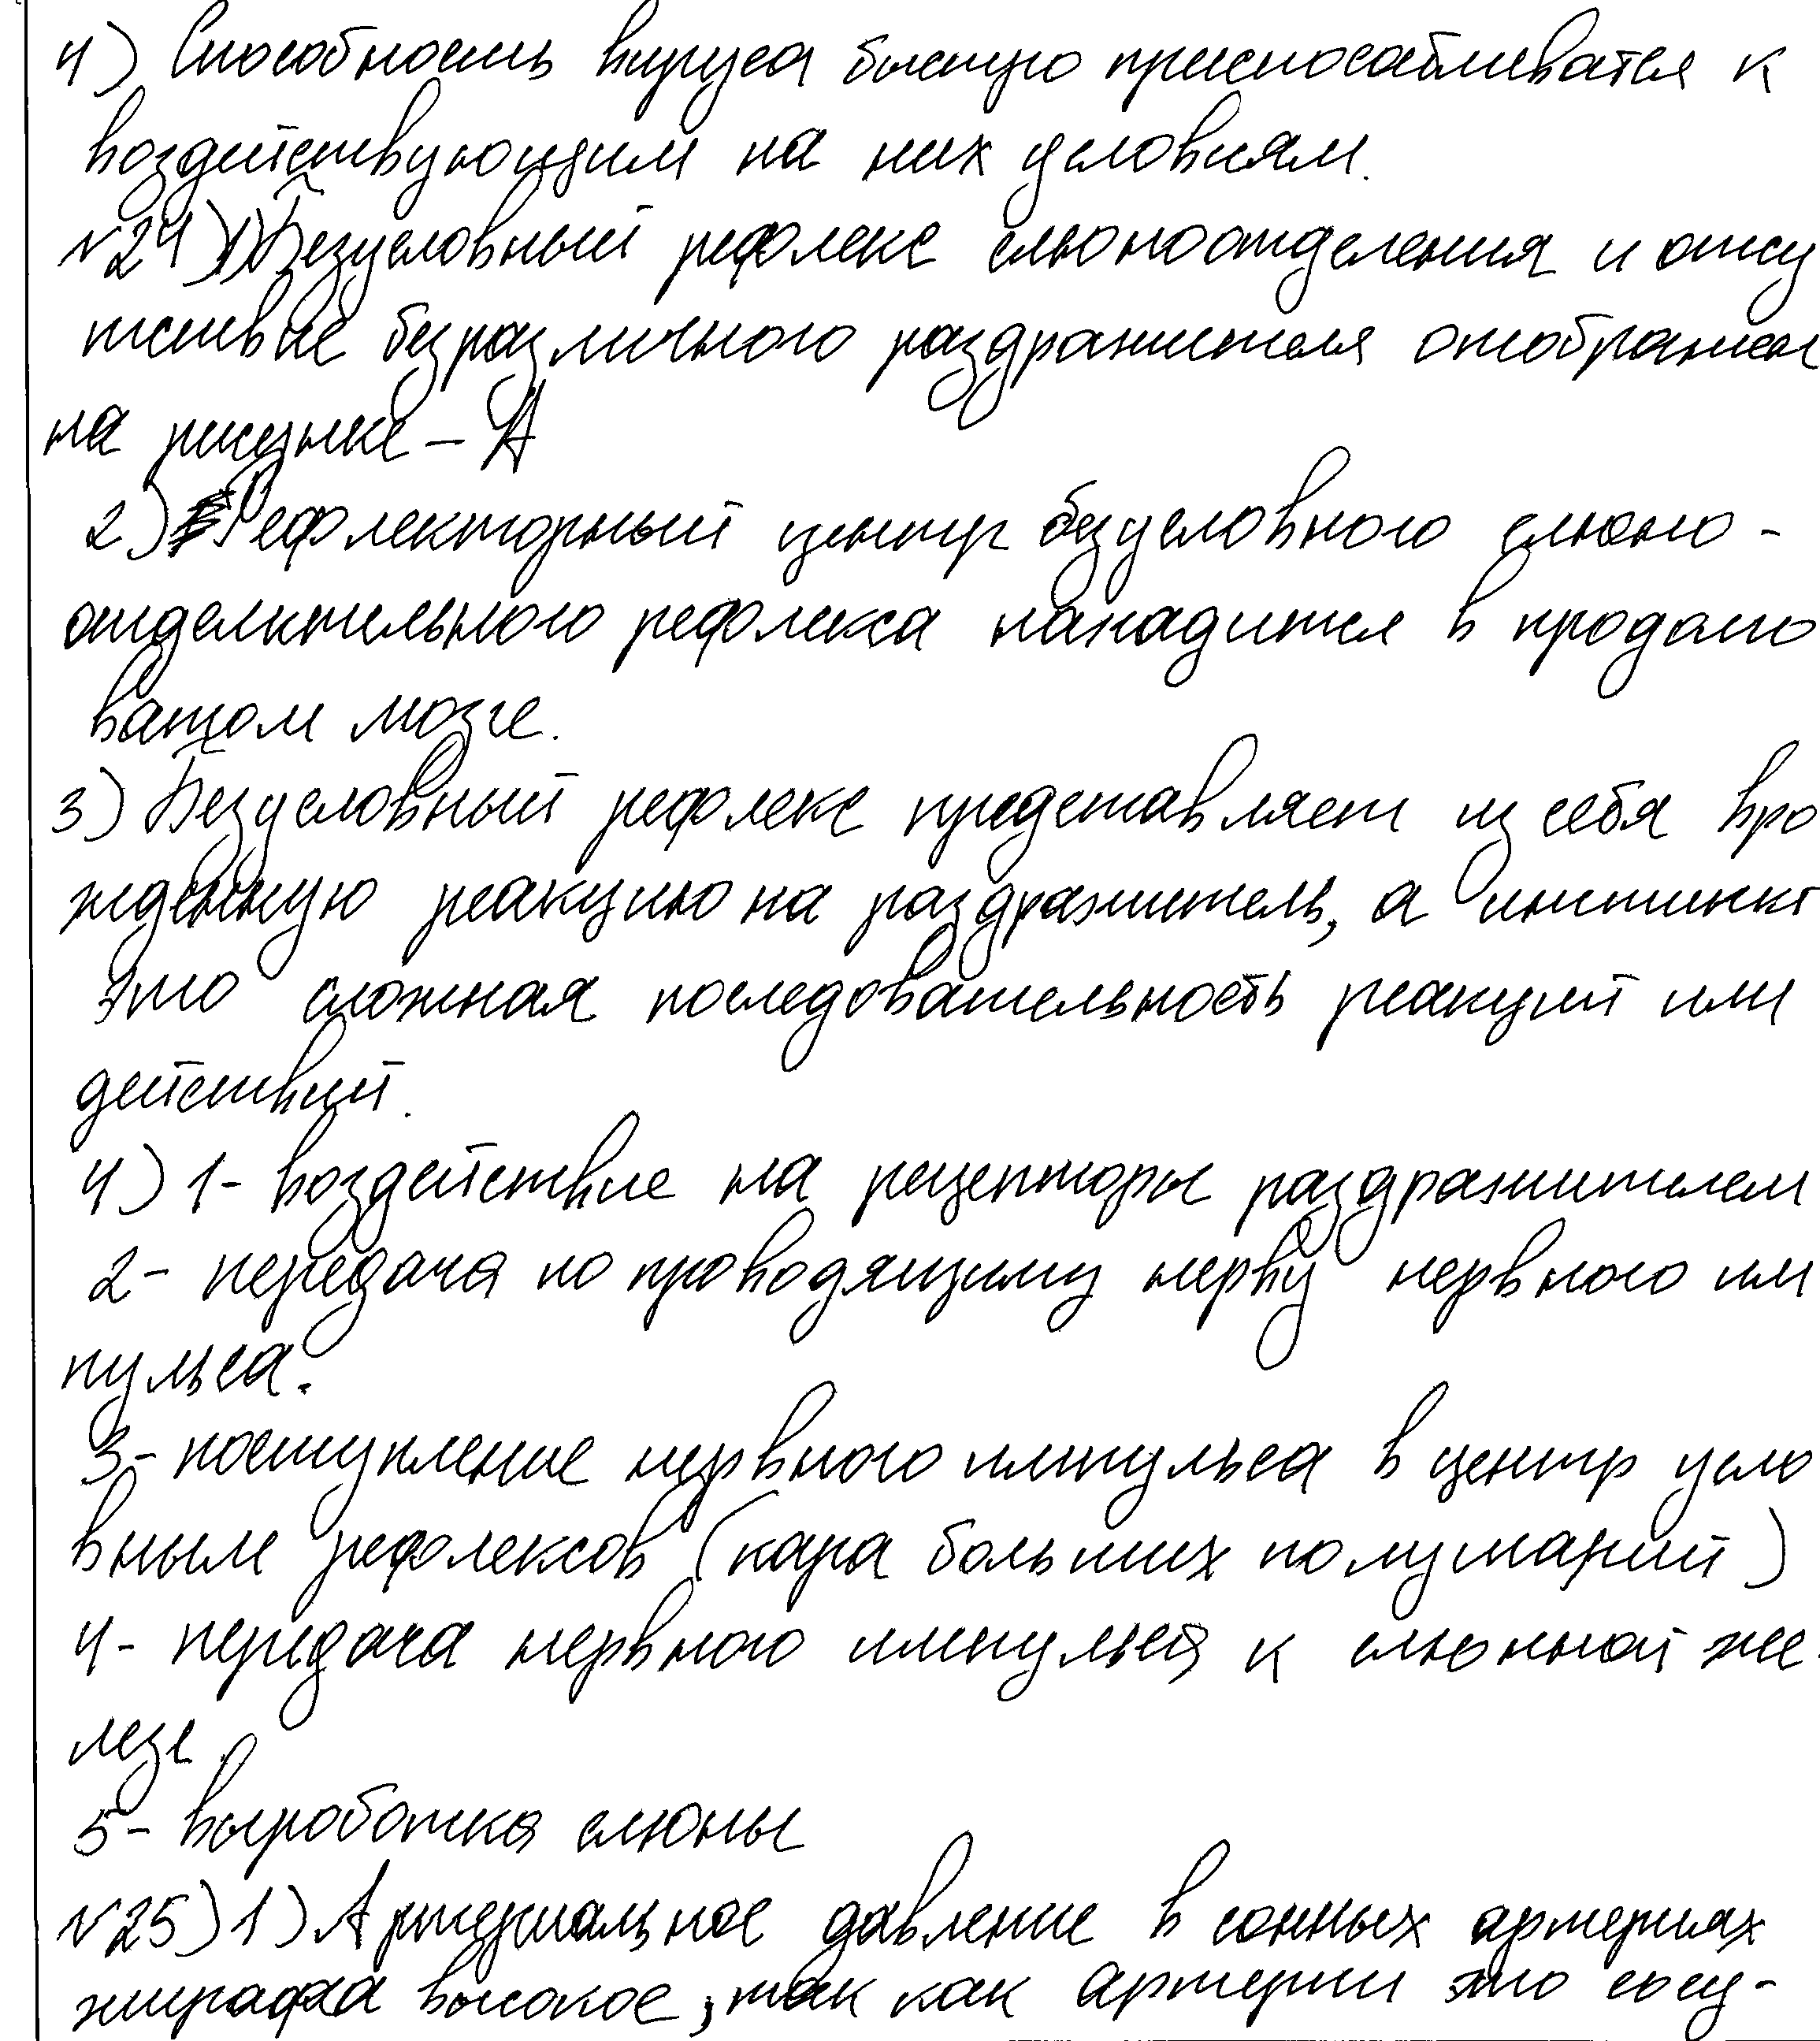 4) Способность вируса быстро приспосабливатся к
воздействующим на них условиям.
№24) 1) Безусловный рефлекс слюноотделения и отсу
тствие безразличного раздражителя отображен
на рисунке – А
2) Рефлекторный центр безусловного слюно-
отделительного рефлекса нахадится в продолго
ватом мозге.
3) Безусловный рефлекс представляет из себя вро
жденную реакцию на раздражитель, а инстинкт
это сложная последовательность реакций или
действий.
4) 1- воздействие на рецепторы раздражителем
2- передача по проводящиму нерву нервного им
пульса.
3- поступление нервного импульса в центр усло
вным рефлексов (кара больших полушарий)
4- передача нервного импульса к слюнной же-
лезе.
5- выработка слюны
№25) 1) Артериальное давление в сонных артериях
жирафа высокое, так как артерии это сосу-